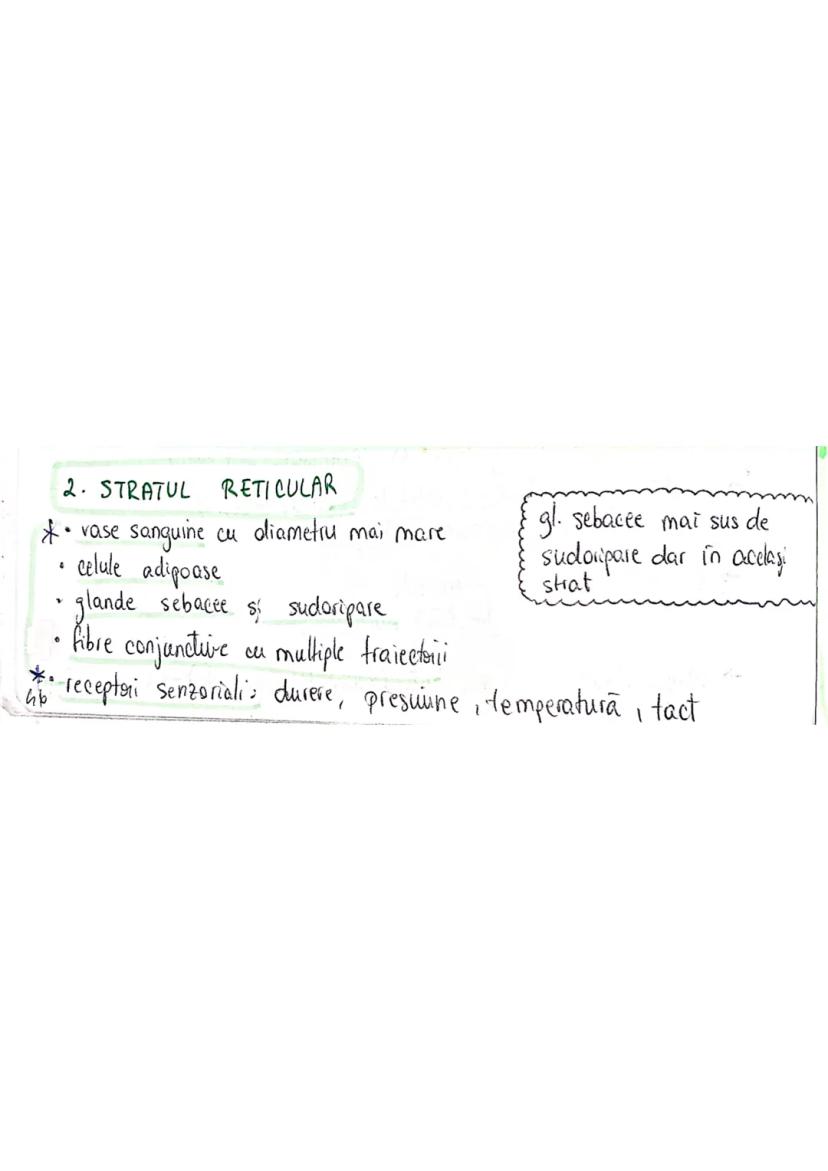 2. STRATUL RETICULAR
* • vase sanguine cu diametru mai mare
• celule adipoase
• glande sebacee și sudoripare
• fibre conjunctive cu multiple traiectorii
* • receptori senzoriali: durere, presiune, temperatură, tact
gl. sebacee mai sus de
sudoripare dar în același
strat